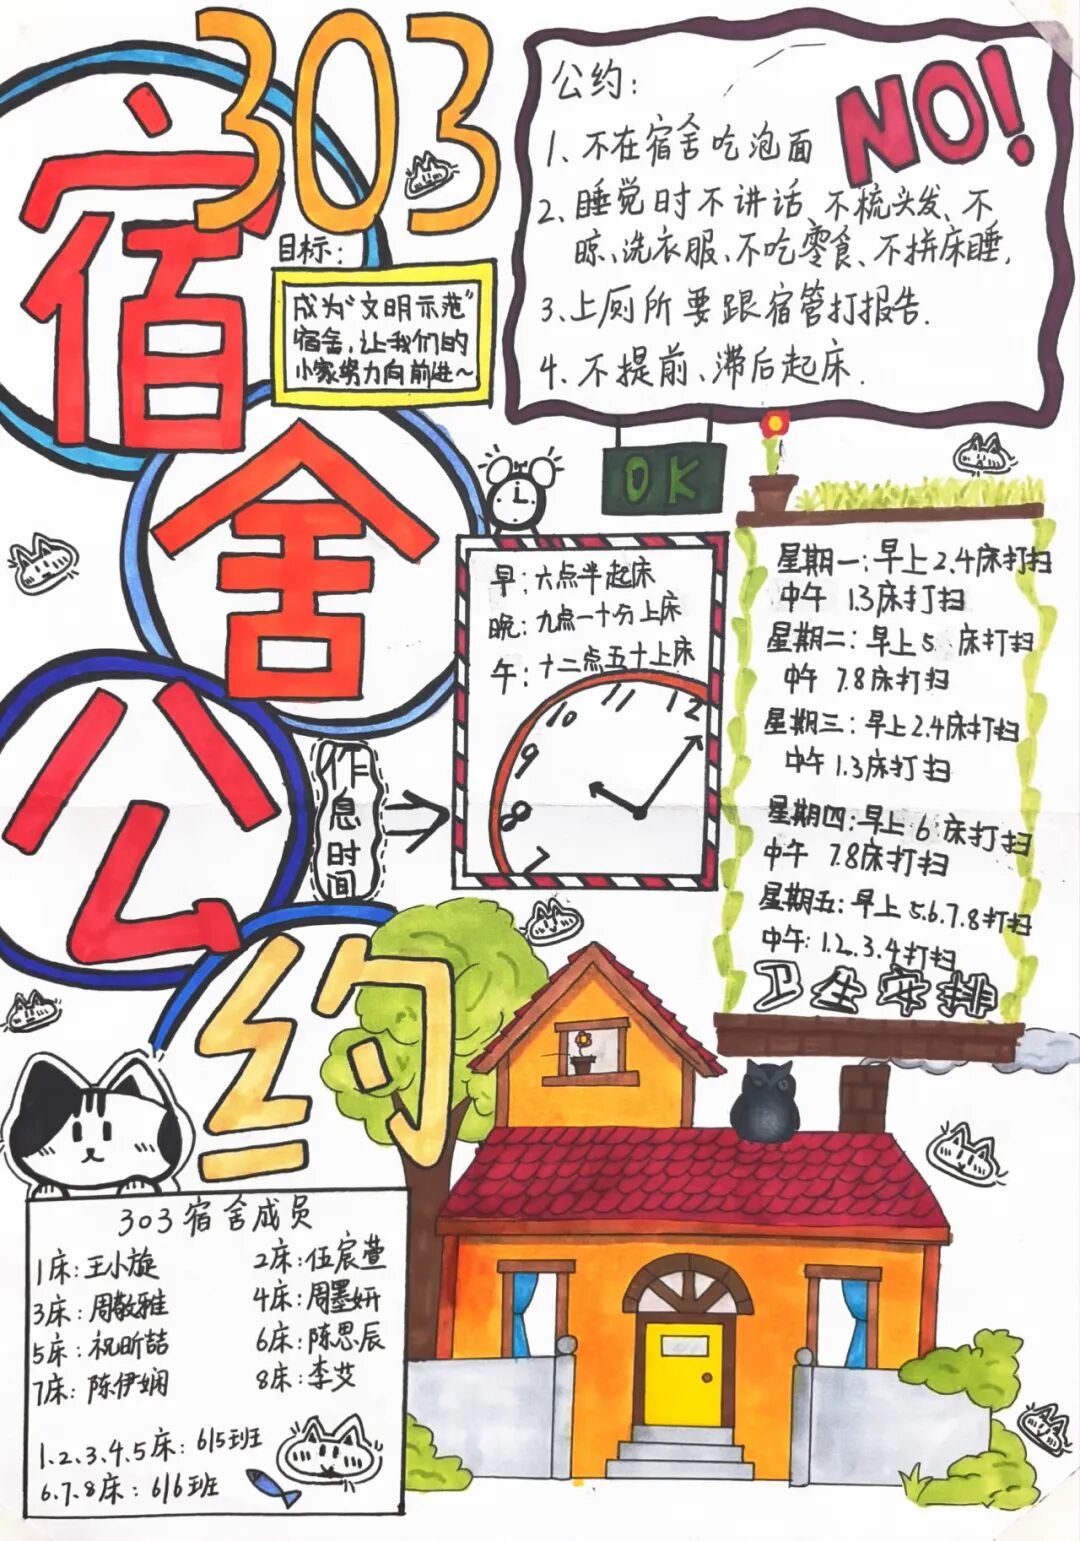 303
宿舍公约
目标：
成为“文明示范”
宿舍，让我们的
小家努力向前进～
公约：
NO!
1、不在宿舍吃泡面
2、睡觉时不讲话、不梳头发、不
晾、洗衣服、不吃零食、不拼床睡.
3、上厕所要跟宿管打报告.
4、不提前、滞后起床.
OK
作息时间
早：六点半起床
晚：九点一十分上床
午：十二点五十上床
7 8 9 10 11 12
星期一：早上2.4床打扫
中午 1.3床打扫
星期二：早上5 床打扫
中午 7.8床打扫
星期三：早上2.4床打扫
中午1.3床打扫
星期四：早上6 床打扫
中午 7.8床打扫
星期五：早上5.6.7.8打扫
中午：1.2.3.4打扫
卫生安排
303宿舍成员
1床：王小旋
2床：伍宸萱
3床：周敬雅
4床：周墨妍
5床：祝昕喆
6床：陈思辰
7床：陈伊娴
8床：李艾
1.2.3.4.5床：615班
6.7.8床：616班